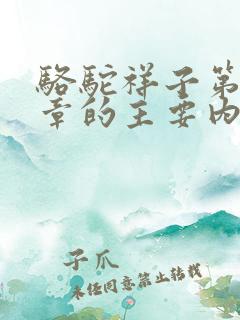 骆驼祥子第
章的主要内
子爪
未经同意禁止转载